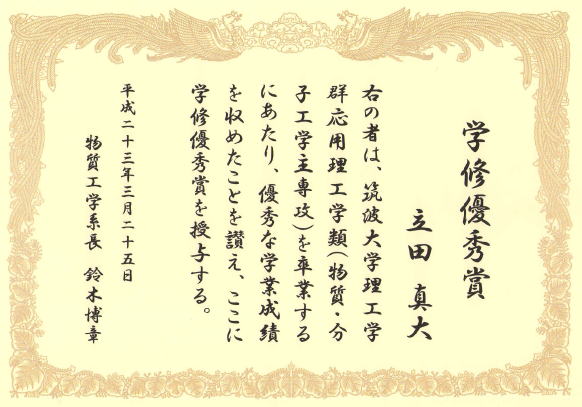 学修優秀賞
立田 真大
右の者は、筑波大学理工学
群応用理工学類(物質・分
子工学主専攻)を卒業する
にあたり、優秀な学業成績
を収めたことを讃え、ここに
学修優秀賞を授与する。
平成二十三年三月二十五日
物質工学系長 鈴木博章